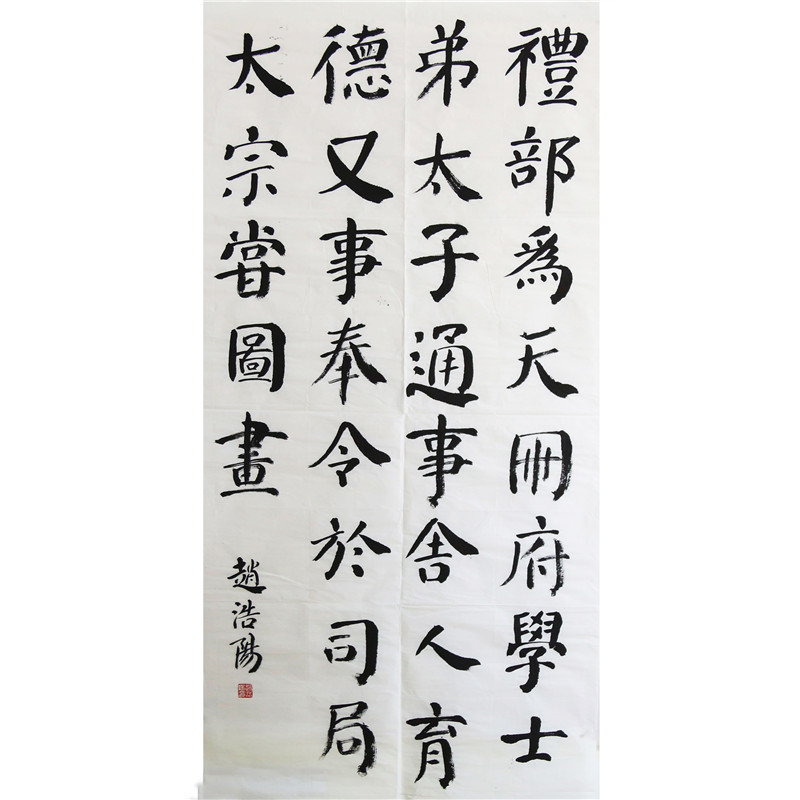 禮部爲天冊府學士
弟太子通事舍人育
德又事奉令於司局
太宗嘗圖畫
趙浩陽